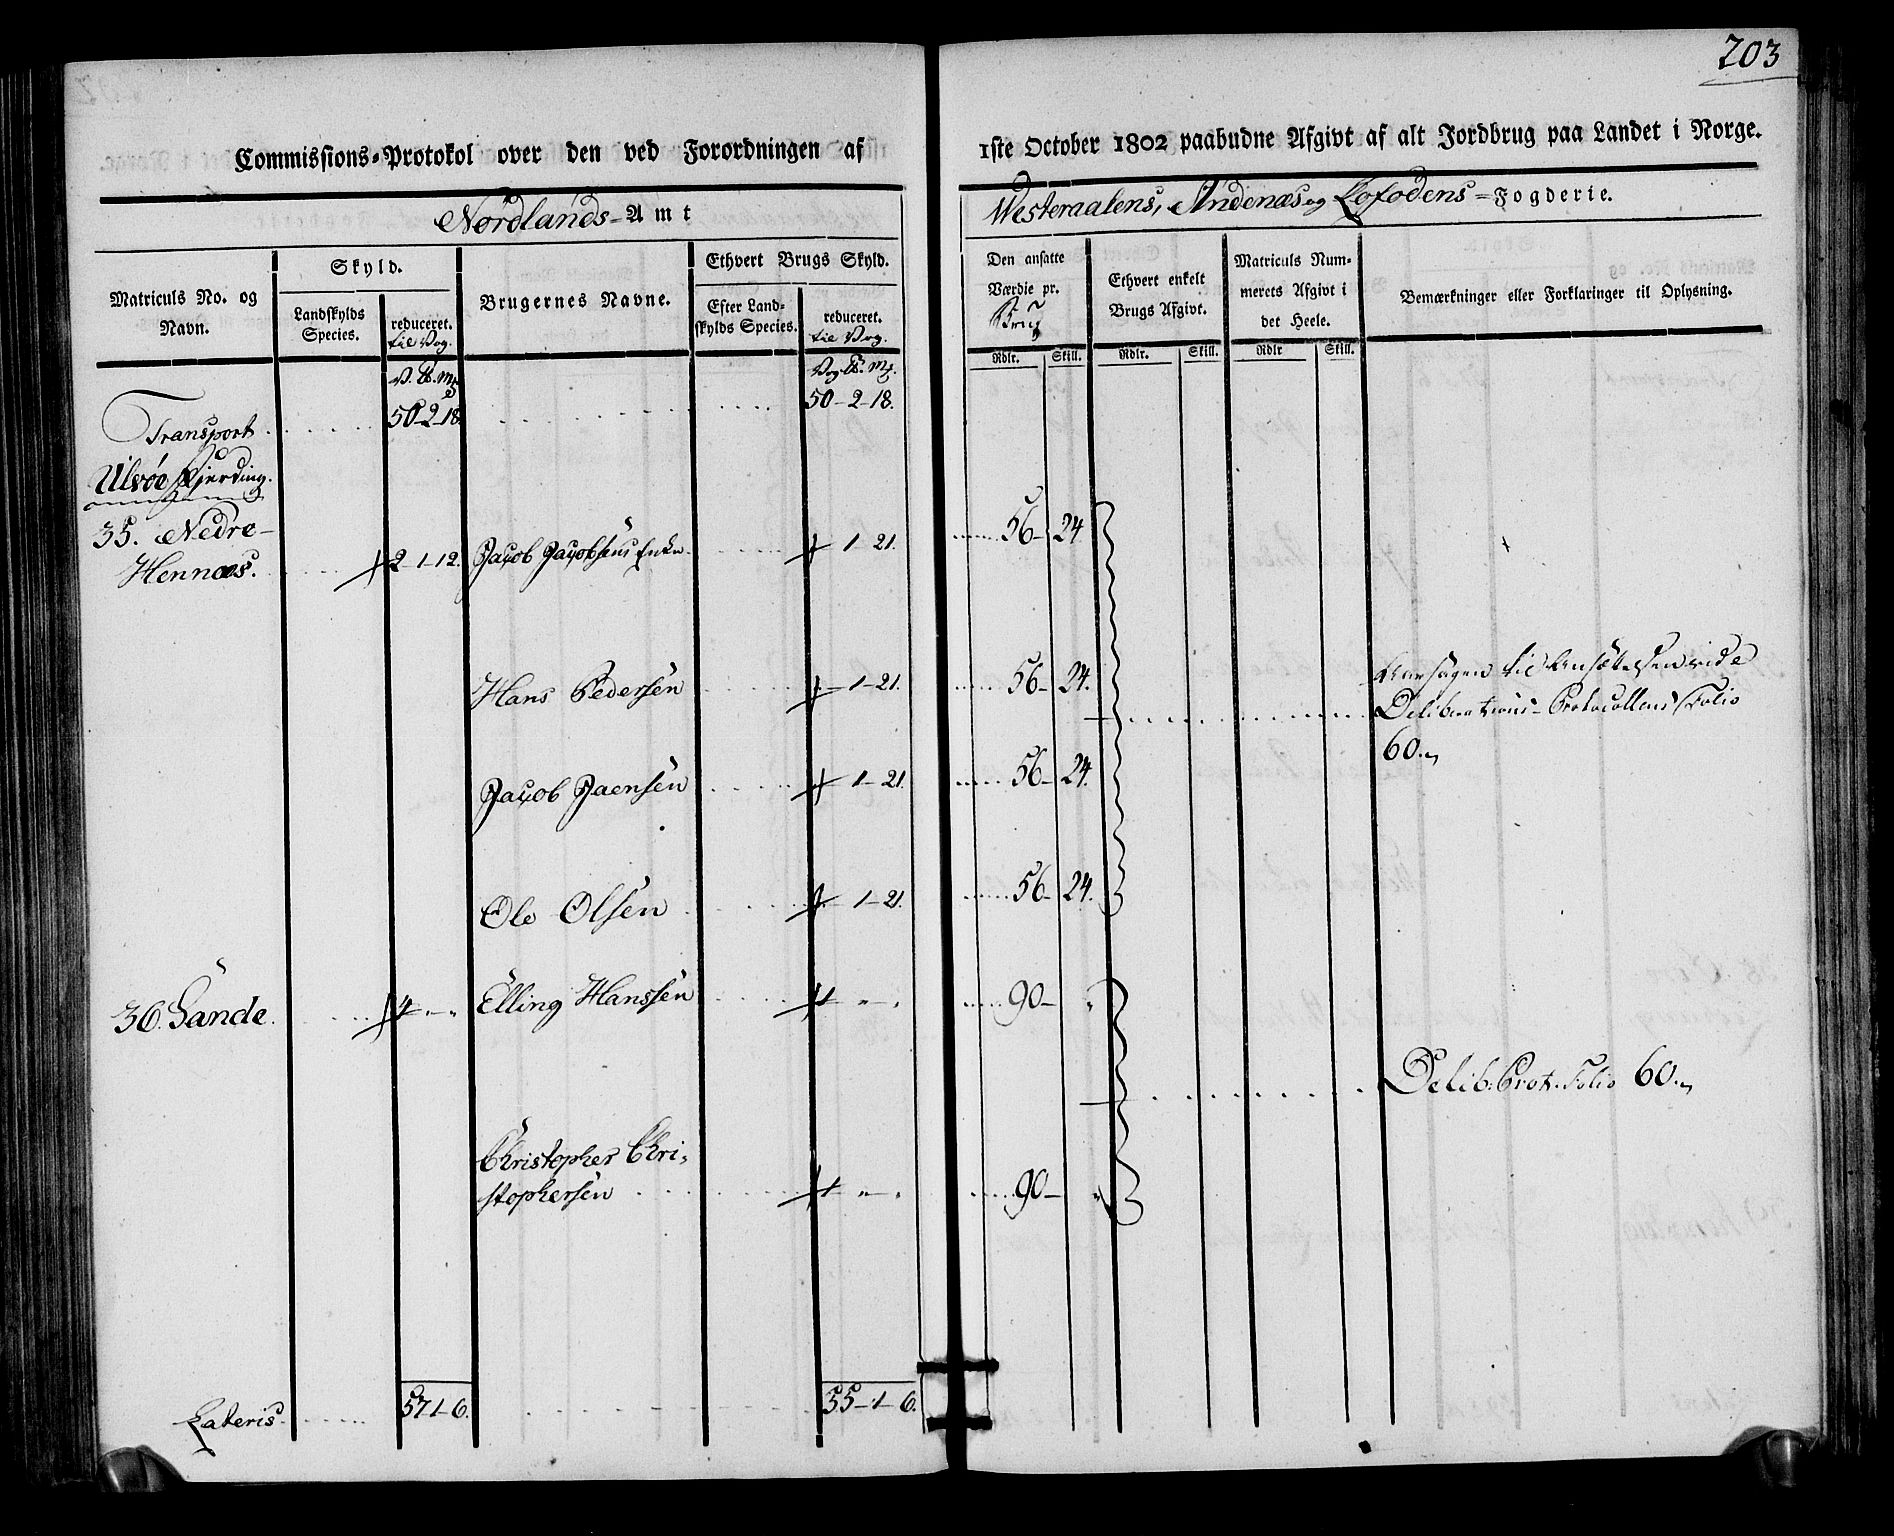 203
Commissions-Protokol over den ved Forordningen af 1ste October 1802 paabudne Afgivt af alt Jordbrug paa Landet i Norge.
Nordlands-Amt
Westeraalens, Andenæs og Lofodens-Fogderie.
Matriculs No. og Navn.
Skyld.
Landskylds Species.
reduceret. til Vog.
Brugernes Navne.
Ethvert Brugs Skyld.
Efter Landskylds Species.
reduceret. til Vog.
Den ansatte Værdie pr. Brug
Rdlr. Skill.
Ethvert enkelt Brugs Afgivt.
Rdlr. Skill.
Matriculs Nummerets Afgivt i det Heele.
Rdlr Skill.
Bemærkninger eller Forklaringer til Oplysning.
V. ℔. mk
Vog ℔. mk.
Transport 50-2-18. 50-2-18.
Ulvøe Fjerding.
35. Nedre-
Hennæs. 2-1-12. Jacob Jacobsens Enke 1-21. 56- 24
Hans Pedersen 1-21. 56- 24.
til Ansættelsen vide
Deliberations-Protocollens Folio
60.
Jacob Jaensen 1-21. 56- 24.
Ole Olsen 1-21. 56- 24.
36. Sande. 4 - " - " Elling Hanssen 1 - " - " 90- "
Delib: Prot. Folio 60.
Christopher Chri-
stophersen 1 - " - " 90- "
Lateris 57-1-6. 55-1-6.